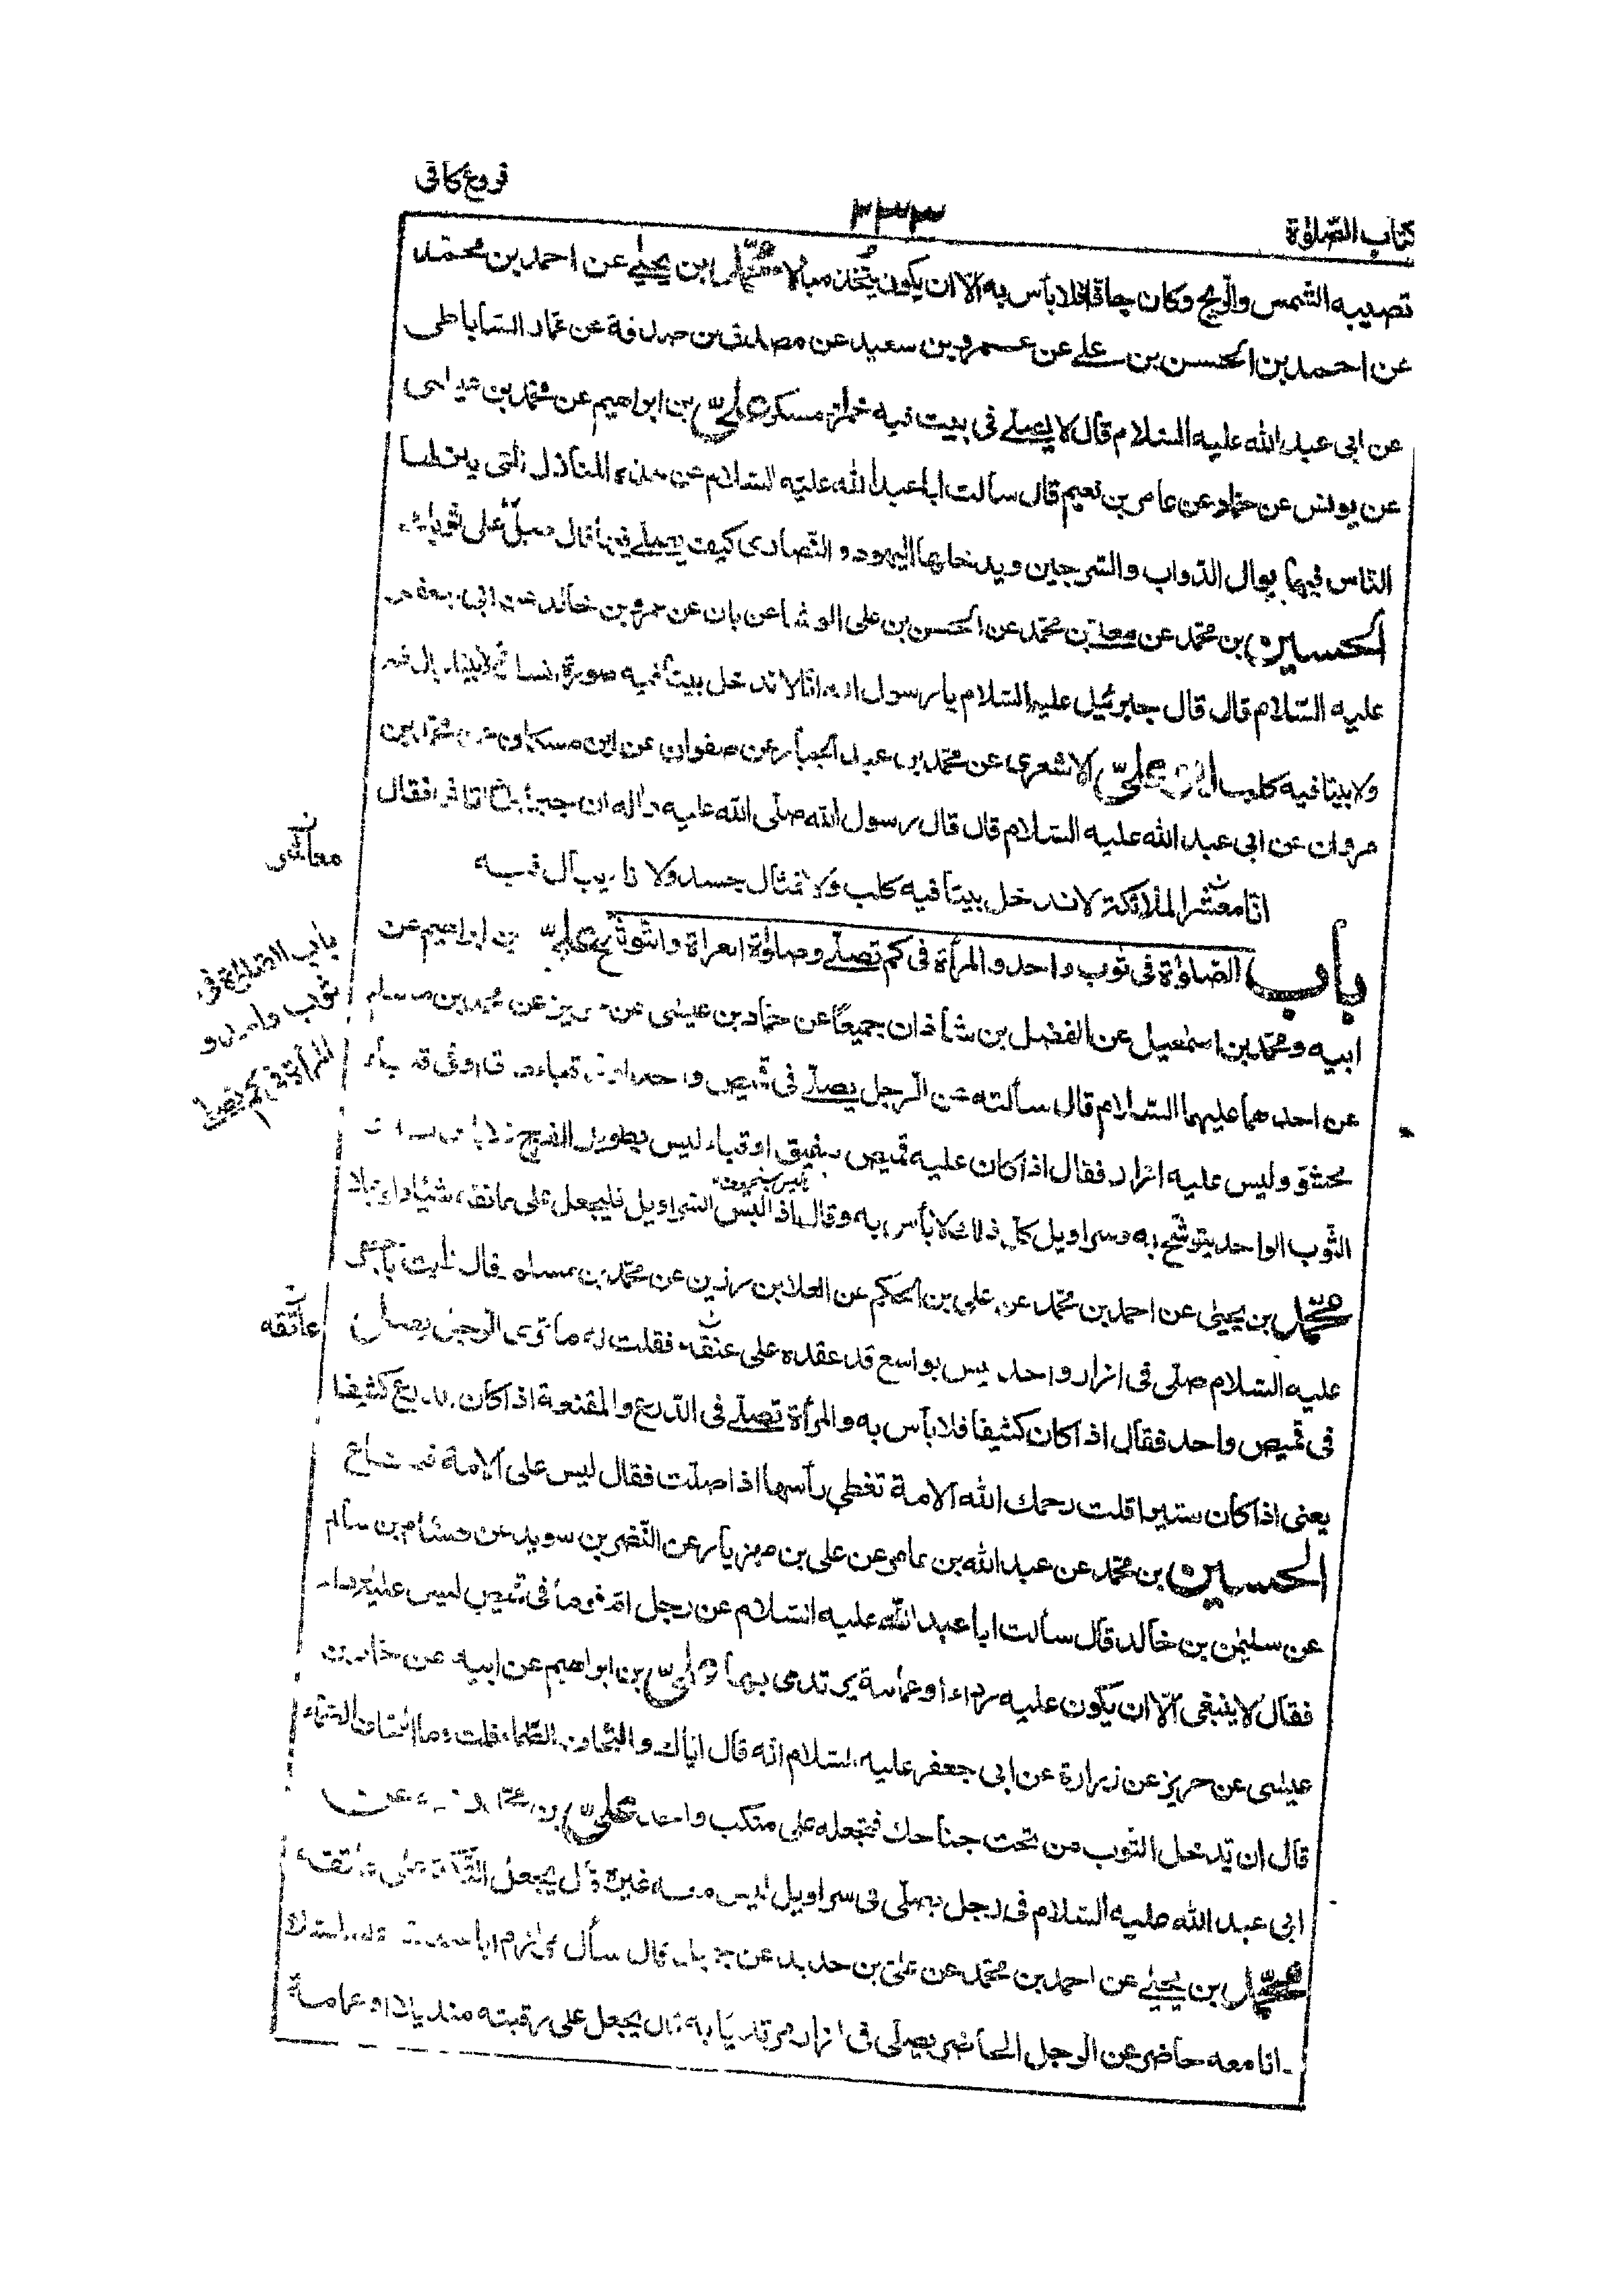 فروع کافی
۳۳۳
کتاب الصّلوٰة
تصیبه الشّمس والرّیح وکان جافا فلا بأس به الّا ان یکون یتّخذ مبالا محمّد بن یحیٰی عن احمد بن محمّد
عن احمد بن الحسن بن علی عن عمرو بن سعید عن مصدق بن صدقة عن عمار السّاباطی
عن ابی عبد الله علیه السّلام قال لا یصلّی فی بیت فیه خمر او مسکر علیّ بن ابراهیم عن محمّد بن عیسی
عن یونس عن حمّاد عن عامر بن نعیم قال سألت ابا عبد الله علیه السّلام عن هذه المنازل التی ینزلها
النّاس فیها ابوال الدّواب والسّرجین ویدخلها الیهود و النّصاری کیف یصلّی فیها قال صلّ علی ثوبك
الحسین بن محمّد عن معلّی بن محمّد عن الحسن بن علی الوشا عن ابان عن عمرو بن خالد عن ابی جعفر
علیه السّلام قال قال جبرئیل علیه السّلام یا رسول الله انّا لا ندخل بیتا فیه صورة انسان ولا بیتا یبال فیه
ولا بیتا فیه کلب ابو علیّ الاشعری عن محمّد بن عبد الجبار عن صفوان عن ابن مسکان عن محمّد بن
مروان عن ابی عبد الله علیه السّلام قال قال رسول الله صلّی الله علیه واله ان جبرئیل اتانی فقال
انّا معشر الملائکة لا ندخل بیتا فیه کلب ولا تمثال جسد ولا اناء یبال فیه
معاشر
باب الصّلوٰة فی ثوب واحد و المرأة فی کم تصلّی وصلوٰة العراة والتوشّح علیّ بن ابراهیم عن
باب الصّلوٰة فی
ثوب واحد و
المرأة فی کم تصلّی
ابیه ومحمّد بن اسمٰعیل عن الفضل بن شاذان جمیعاً عن حمّاد بن عیسٰی عن حریز عن محمد بن مسلم
عن احدهما علیهما السّلام قال سألته عن الرّجل یصلّی فی قمیص واحد او قباء طاق او فی قباء
محشوّ ولیس علیه ازار فقال اذا کان علیه قمیص صفیق او قباء لیس بطویل الفرج فلا بأس
الثّوب الواحد یتوشّح به وسراویل کلّ ذلك لا بأس به وقال اذا لبس السّراویل فلیجعل علی عاتقه شیئا ولو حبلا
محمّد بن یحیٰی عن احمد بن محمّد عن علی بن الحکم عن العلا بن رزین عن محمّد بن مسلم قال رأیت ابا جعفر
علیه السّلام صلّی فی ازار واحد لیس بواسع قد عقده علی عنقه فقلت له ما تری الرّجل یصلّی
عاتقه
فی قمیص واحد فقال اذا کان کثیفا فلا بأس به والمرأة تصلّی فی الدّرع والمقنعة اذا کان الدرع کثیفا
یعنی اذا کان ستیرا قلت رحمك الله الامة تغطی رأسها اذا صلّت فقال لیس علی الامة قناع
الحسین بن محمّد عن عبد الله بن عامر عن علی بن مهزیار عن النّضر بن سوید عن هشام بن سالم
عن سلیمٰن بن خالد قال سألت ابا عبد الله علیه السّلام عن رجل امّ قوما فی قمیص لیس علیه رداء
فقال لا ینبغی الّا ان یکون علیه رداء او عمامة یرتدی بها علیّ بن ابراهیم عن ابیه عن حمّاد بن
عیسٰی عن حریز عن زرارة عن ابی جعفر علیه السّلام انّه قال ایّاك والتحاف الصّماء قلت وما التحاف الصّماء
قال ان تدخل الثّوب من تحت جناحك فتجعله علی منکب واحد علیّ بن محمّد
ابی عبد الله علیه السّلام فی رجل یصلّی فی سراویل لیس معه غیره قال یجعل التّکّة علی عاتقه
محمّد بن یحیٰی عن احمد بن محمّد عن علی بن حدید عن جمیل قال سأل مرازم ابا عبد الله علیه السلام
وانا معه حاضر عن الرّجل الحاضر یصلّی فی ازار مرتدیا به قال یجعل علی رقبته مندیلا او عمامة